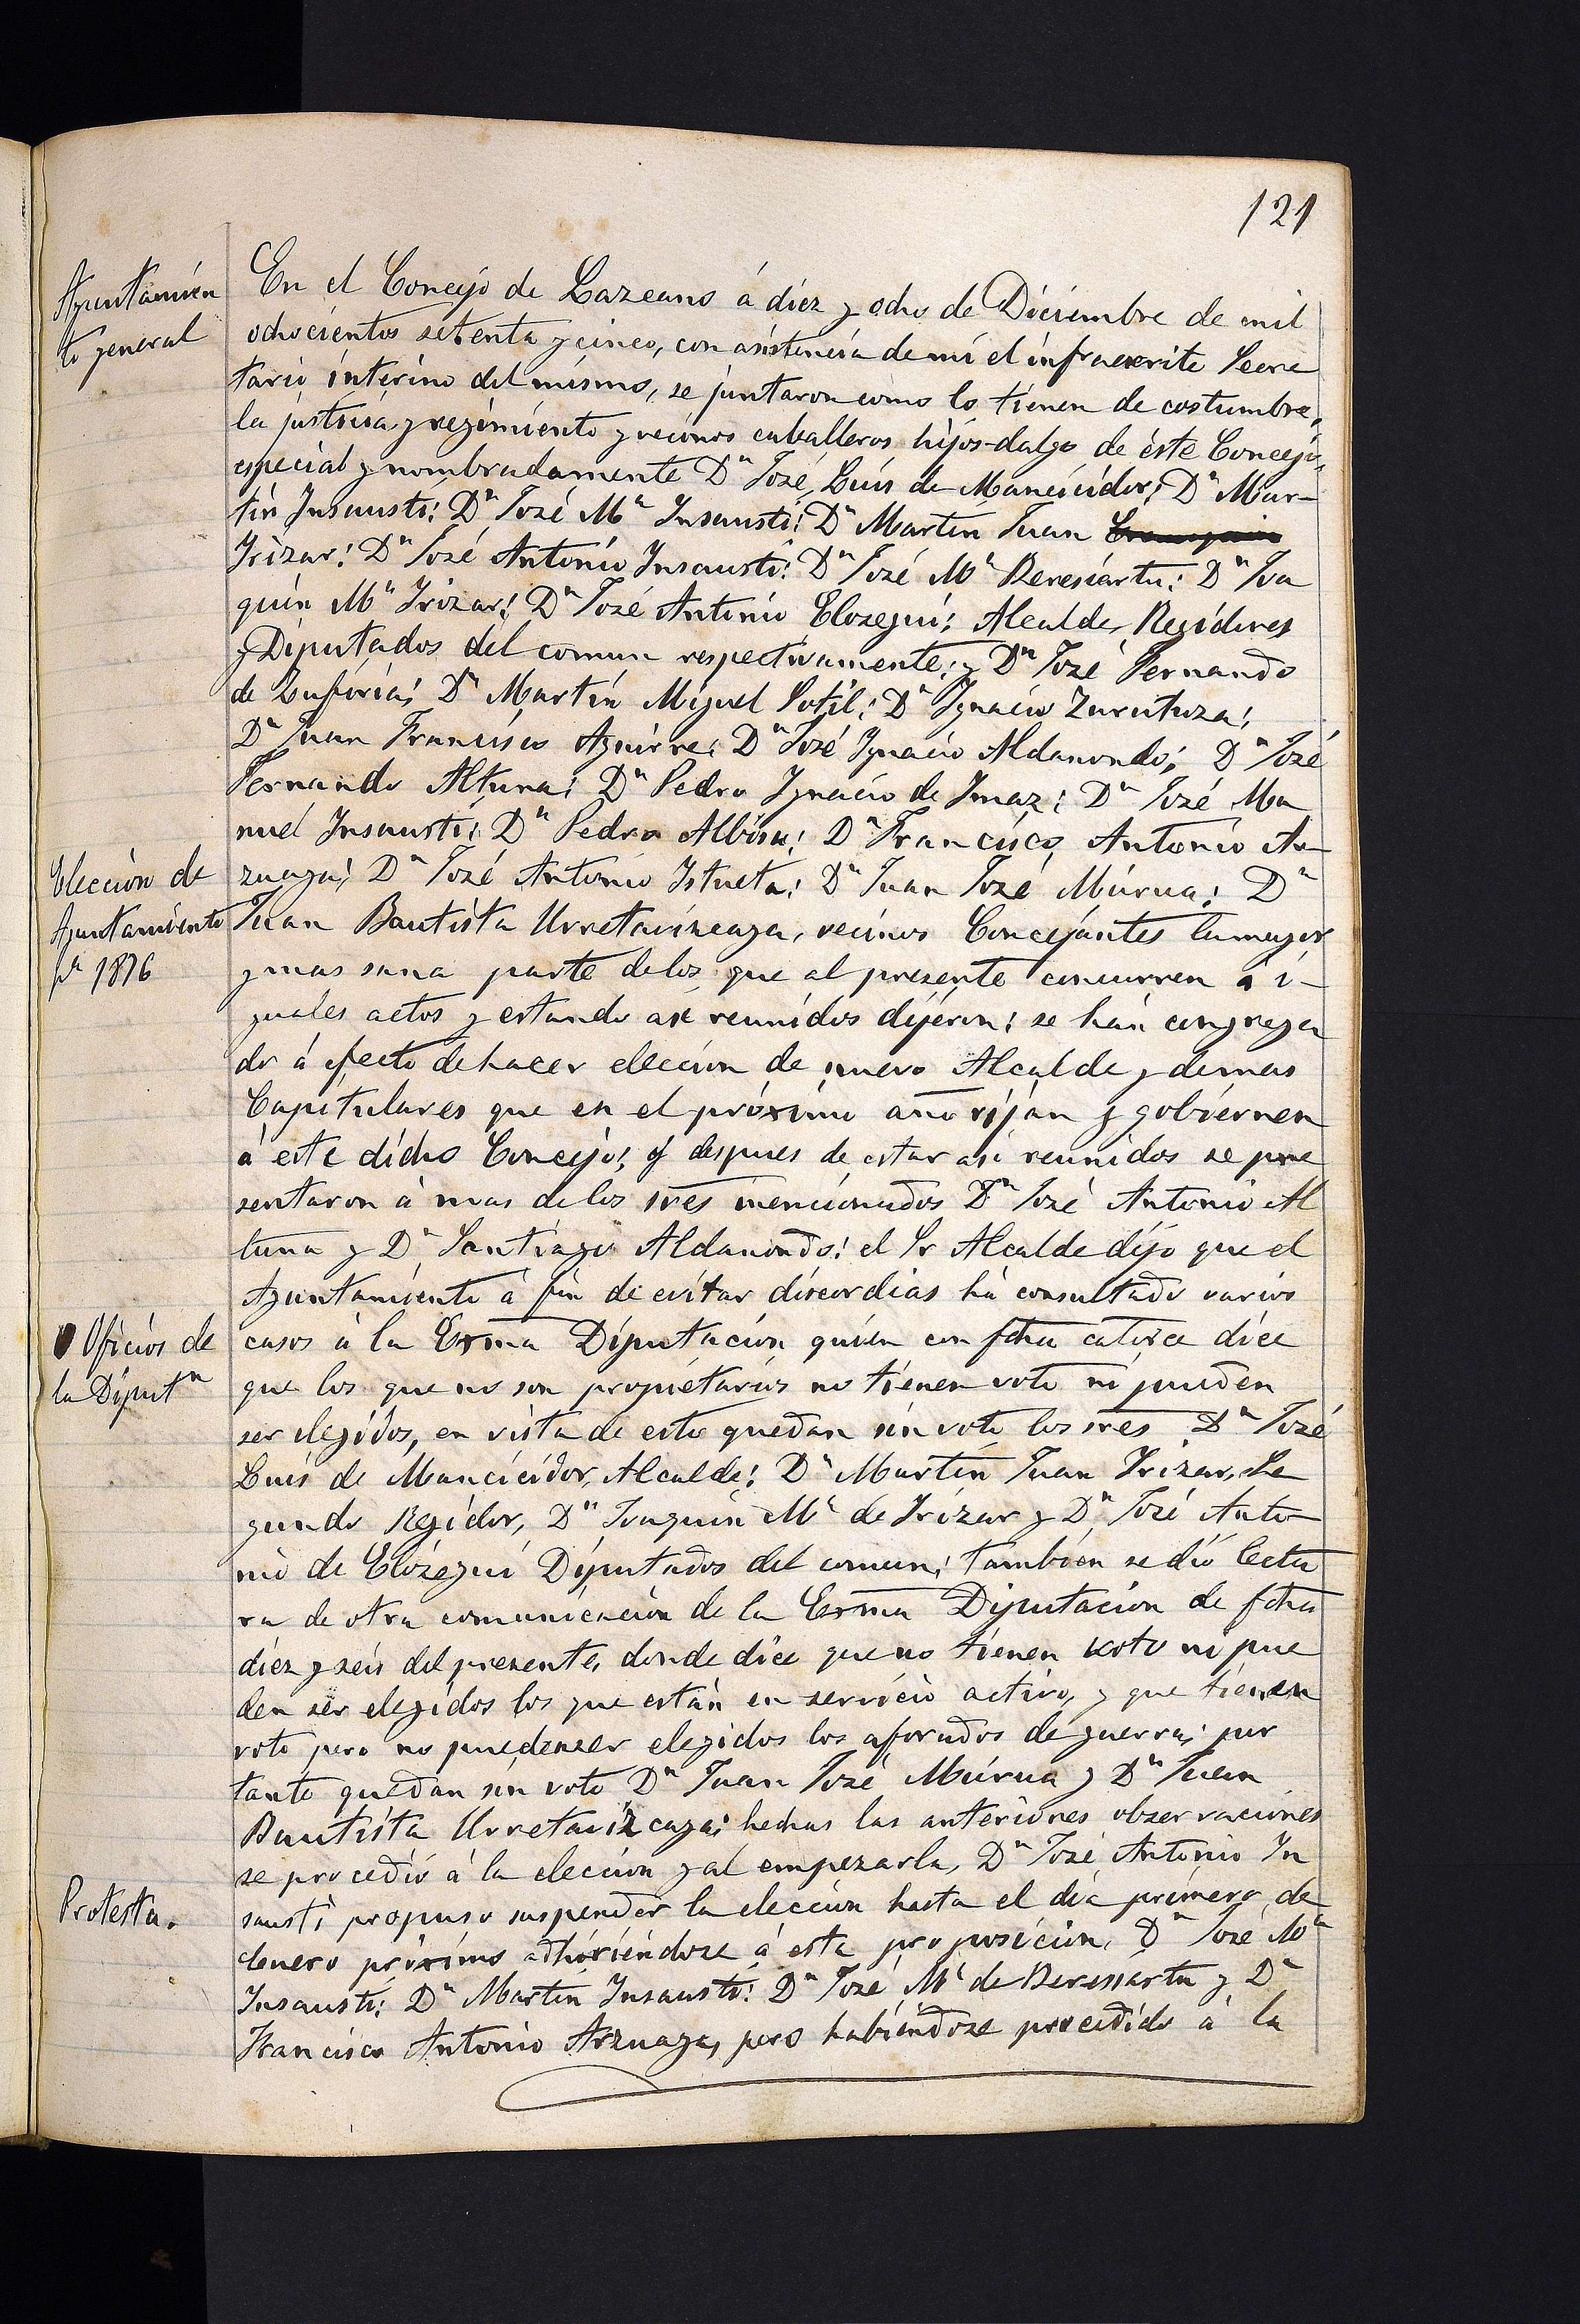 121
Ayuntamien
to general
En el Concejo de Lazcano á diez y ocho de Diciembre de mil
ochocientos setenta y cinco, con asistencia de mi el infraescrito Secre
tario interino del mismo, se juntaron como lo tienen de costumbre,
la justicia y regimiento y vecinos caballeros hijos-dalgo de éste Concejo,
especial y nombradamente Dn José Luis de Mancicidor; Dn Mar-
tin Insausti; Dn José Ma Insausti; Dn Martin Juan
Irizar; Dn José Antonio Insausti; Dn José Ma Beresiartu; Dn Joa
quin Ma Irizar; Dn José Antonio Elosegui; Alcalde, Regidores
y Diputados del comun respectivamente; y Dn José Fernando
de Zufiria; Dn Martin Miguel Sotil; Dn Ignacio Zurutuza;
Dn Juan Francisco Aguirre; Dn José Ignacio Aldanondo; Dn José
Fernando Altuna; Dn Pedro Ignacio de Imaz; Dn José Ma
nuel Insausti; Dn Pedro Albisu; Dn Francisco Antonio Ar
Eleccion de
Ayuntamiento
pa 1876
zuaga; Dn José Antonio Istueta; Dn Juan José Múrua; Dn
Juan Bautista Urretavizcaya, vecinos Concejantes la mayor
y mas sana parte de los que al presente concurren á i-
guales actos y estando asi reunidos dijeron: se han congrega
do á efecto de hacer eleccion de nuevo Alcalde y demas
Capitulares que en el próximo año rijan y gobiernen
á este dicho Concejo; y despues de estar asi reunidos se pre
sentaron á mas de los tres mencionados Dn José Antonio Al
tuna y Dn Santiago Aldanondo; el Sr Alcalde dijo que el
Ayuntamiento á fin de evitar discordias há consultado varios
Oficios de
la Diputn
casos á la Exma Diputacion quien con fcha catorce dice
que los que no son propietarios no tienen voto ni pueden
ser elegidos, en vista de esto quedan sin voto los sres Dn José
Luis de Mancicidor, Alcalde; Dn Martin Juan Irizar, Se
gundo Regidor, Dn Joaquin Ma de Irizar y Dn José Anto
nio de Elózegui Diputados del comun; tambien se dió lectu
ra de otra comunicacion de la Exma Diputacion de fcha
diez y seis del presente, donde dice que no tienen voto ni pue
den ser elegidos los que están en servicio activo, y que tienen
voto pero no pueden ser elegidos los aforados de guerra; por
tanto quedan sin voto Dn Juan José Múrua y Dn Juan
Bautista Urretavizcaya; hechas las anteriores observaciones
se procedió á la eleccion y al empezarla, Dn José Antonio In
Protesta.
sausti propuso suspender la eleccion hasta el dia primero de
Enero próximo adhiriéndose á esta proposicion, Dn José Ma
Insausti; Dn Martin Insausti; Dn José Ma de Beresiartu y Dn
Francisco Antonio Arzuaga, pero habiéndose procedido á la